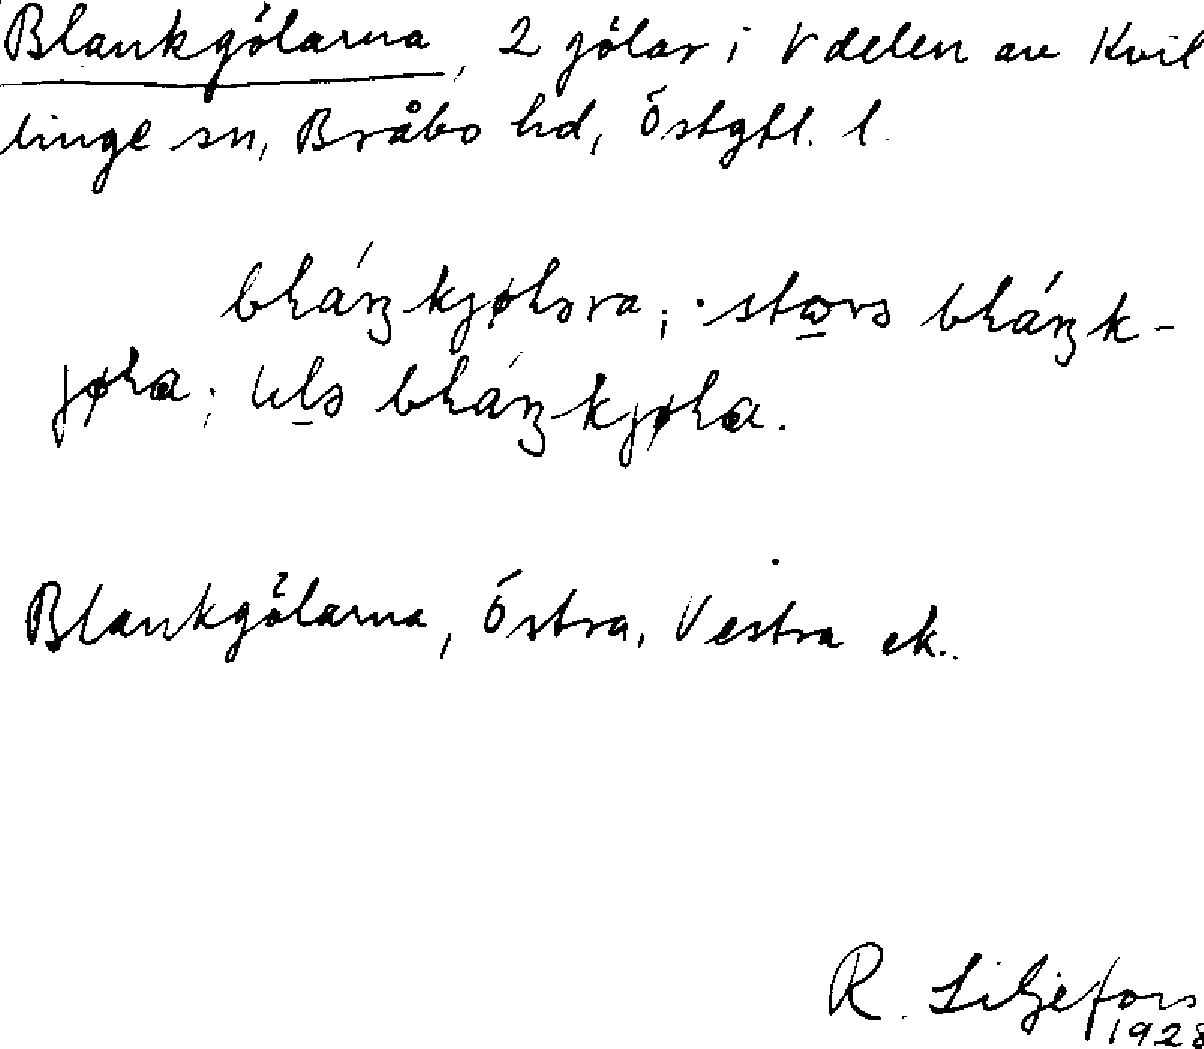 Blankgölarna, 2 gölar i V delen av Kvil
linge sn, Bråbo hd, Östgtl. l.
bláŋkjøləra; ·stɷrə bláŋk-
jøla; lɩlə bláŋkjøla.
Blankgölarna, Östra, Vestra ek.
R. Liljefors
1928